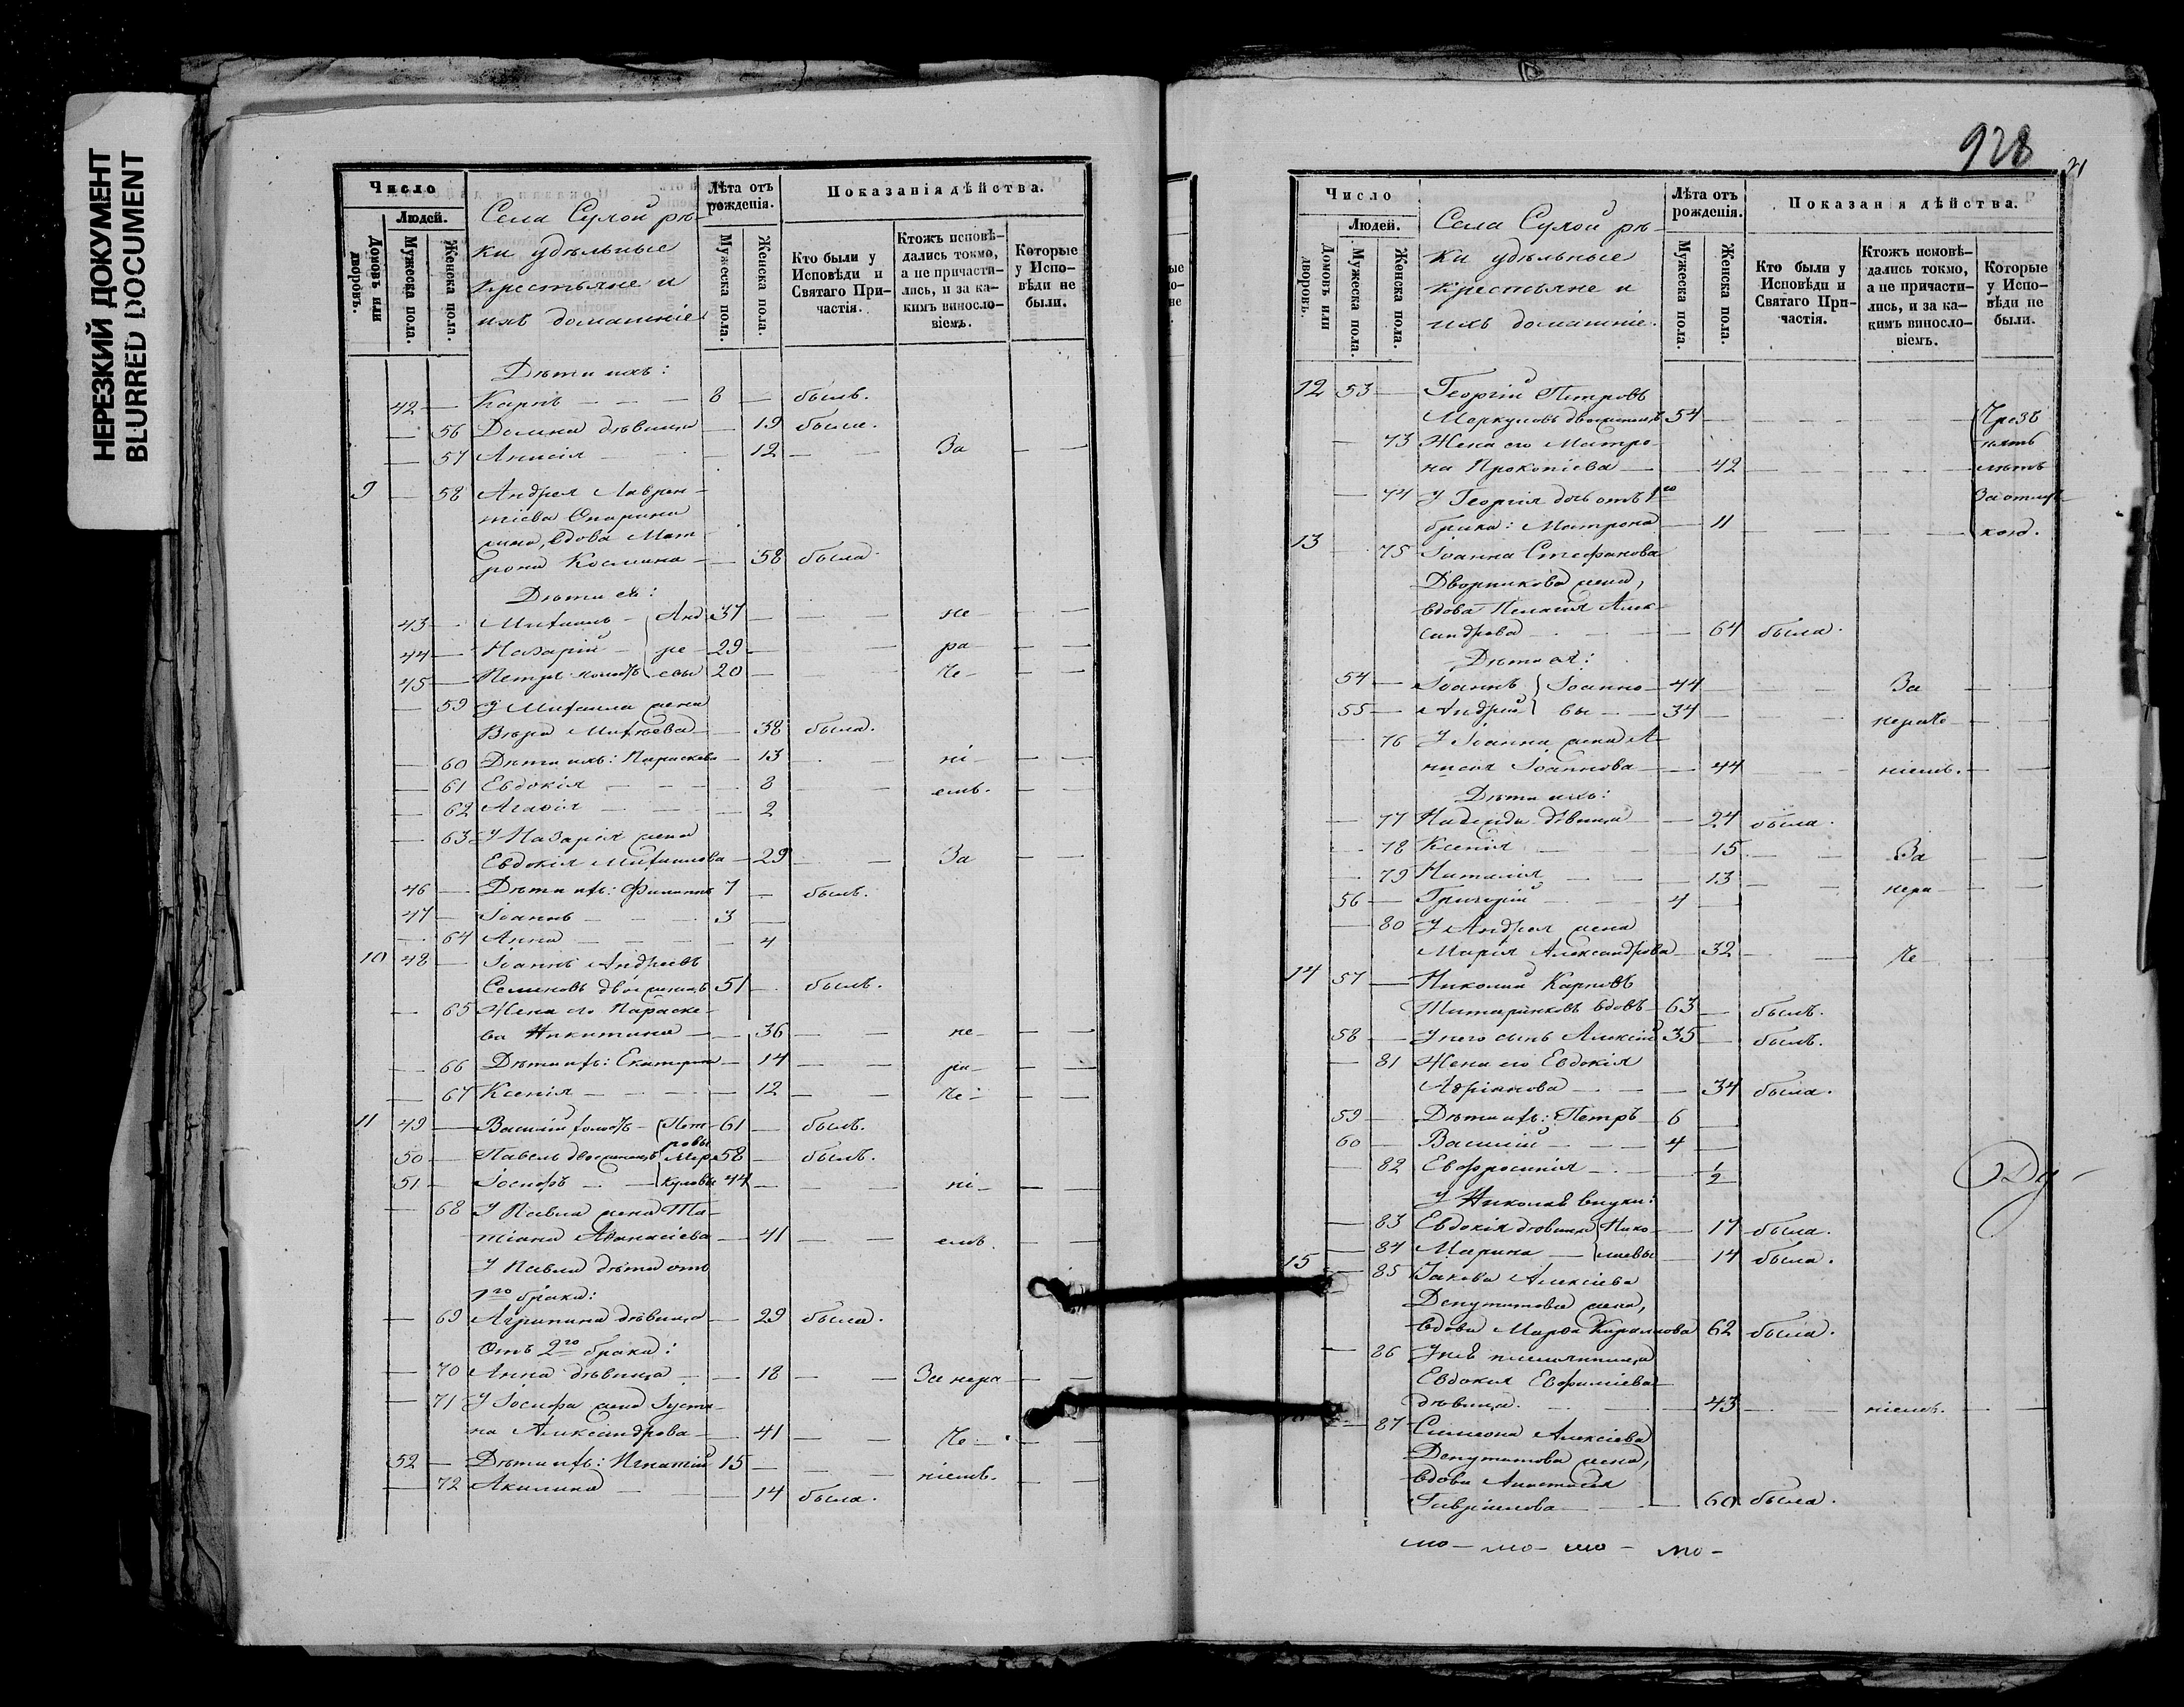 НЕРЕЗКИЙ ДОКУМЕНТ
BLURRED DOCUMENT
Число
Людей.
Домовъ или дворовъ.
Мужеска пола.
Женска пола.
Села Сухой рѣ-
ки удѣльные
крестьяне и
ихъ домашніе
Лѣта отъ рожденія.
Мужеска пола.
Женска пола.
Показанія дѣйства.
Кто были у Исповѣди и Святаго При-частія.
Ктожъ исповѣ-дались токмо, а не причасти-лись, и за ка-кимъ виносло-віемъ.
Которые у Испо-вѣди не были.
Дѣти ихъ:
42 — Карпъ — — — 8 — былъ.
— 56 Домна дѣвица — 19 была.
— 57 Анисія — — 12 — — За — —
9 — 58 Андрея Лаврен-
тіева Опарина
жена, вдова Мат-
рона Космина — — 58 была
Дѣти ея:
43 — Михаилъ — Анд 37 — — — не — — —
44 — Назарій — ре — 29 — ра — — —
45 — Петръ холостъ евы 20 — — че — — —
— 59 У Михаила жена
Вѣра Михѣева — — 38 была.
— 60 Дѣти ихъ: Параскева — 13 — — ні — — —
— 61 Евдокія — — — 8 емъ.
— 62 Агафія — — — 2
— 63 У Назарія жена
Евдокія Михаилова — 29 — — За — —
46 — Дѣти ихъ: Филиппъ 7 — былъ.
47 — Іоаннъ — — — 3 —
— 64 Анна — — — — 4
10 48 — Іоаннъ Андреевъ
Семиновъ двоеженецъ 51 — былъ.
— 65 Жена его Параске-
ва Никитина — — 36 — — не — — —
— 66 Дѣти ихъ: Екатерина — 14 — — ра — — —
— 67 Ксенія — — — — 12 — — че — — —
11 49 — Василій холостъ — Пет- 61 — былъ.
ровы
50 — Павелъ двоеженецъ Мер 58 — былъ.
51 — Іосифъ — — куловы 44 — — — ні — — —
— 68 У Павла жена Та-
тіана Аѳанасіева — 41 — — емъ. — —
У Павла дѣти отъ
1го брака:
— 69 Агрипина дѣвица — 29 была.
Отъ 2го брака:
— 70 Анна дѣвица — — 18 — — За нера — — —
— 71 У Іосифа жена Іусти-
на Александрова — — 41 — — че — — —
52 — Дѣти ихъ: Игнатій 15 — — — ніемъ. — —
— 72 Акилина — — 14 была.
928
Число
Людей.
Домовъ или дворовъ.
Мужеска пола.
Женска пола.
Села Сухой рѣ-
ки удѣльные
крестьяне и
ихъ домашніе.
Лѣта отъ рожденія.
Мужеска пола.
Женска пола.
Показанія дѣйства.
Кто были у Исповѣди и Святаго При-частія.
Ктожъ исповѣ-дались токмо, а не причасти-лись, и за ка-кимъ виносло-віемъ.
Которые у Испо-вѣди не были.
12 53 — Георгій Петровъ
Меркуловъ двоеженецъ 54 — — — — Чрезъ
— 73 Жена его Матро- пять
на Прокопіева — — 42 — — — — лѣтъ
— 74 У Георгія дочь отъ 1го
брака: Матрона — 11 — — — —
13 — 75 Іоанна Стефанова
Дворникова жена,
вдова Пелагія Алек-
сандрова — — — — 64 была.
Дѣти ея:
54 — Іоаннъ Іоанно — 44 — — — За — —
55 — Андрей вы — — 34 — — — нераче — —
— 76 У Іоанна жена А-
нисія Іоаннова — — 44 — — ніемъ. — —
Дѣти ихъ:
— 77 Надежда дѣвица — — 24 была.
— 78 Ксенія — — 15 — — За — —
— 79 Наталія — — — 13 — — нера — — —
56 — Григорій — — — 4 —
— 80 У Андрея жена
Марія Александрова — 32 — — че — — —
14 57 — Николай Карповъ
Титаринковъ вдовъ — 63 — былъ.
58 — У него сынъ Алексій 35 — былъ.
— 81 Жена его Евдокія
Адріанова — — — 34 была.
59 — Дѣти ихъ: Петръ 6 —
60 — Василій — — 4 —
— 82 Евфросинія — — 1/2
У Николая внуки:
— 83 Евдокія дѣвица Нико — 17 была.
— 84 Марина — лаевы — 14 была.
15 — 85 Іакова Алексіева
Депутатова жена,
вдова Марѳа Кирилова 62 была.
— 86 У нея племянница
Евдокія Евфиміева
дѣвица. — — — 43 — — ніемъ. — —
— 87 Симеона Алексіева
Депутатова жена,
вдова Анастасія
Гавріилова — — — 60 была.
Ду-
мо — мо — мо — мо —